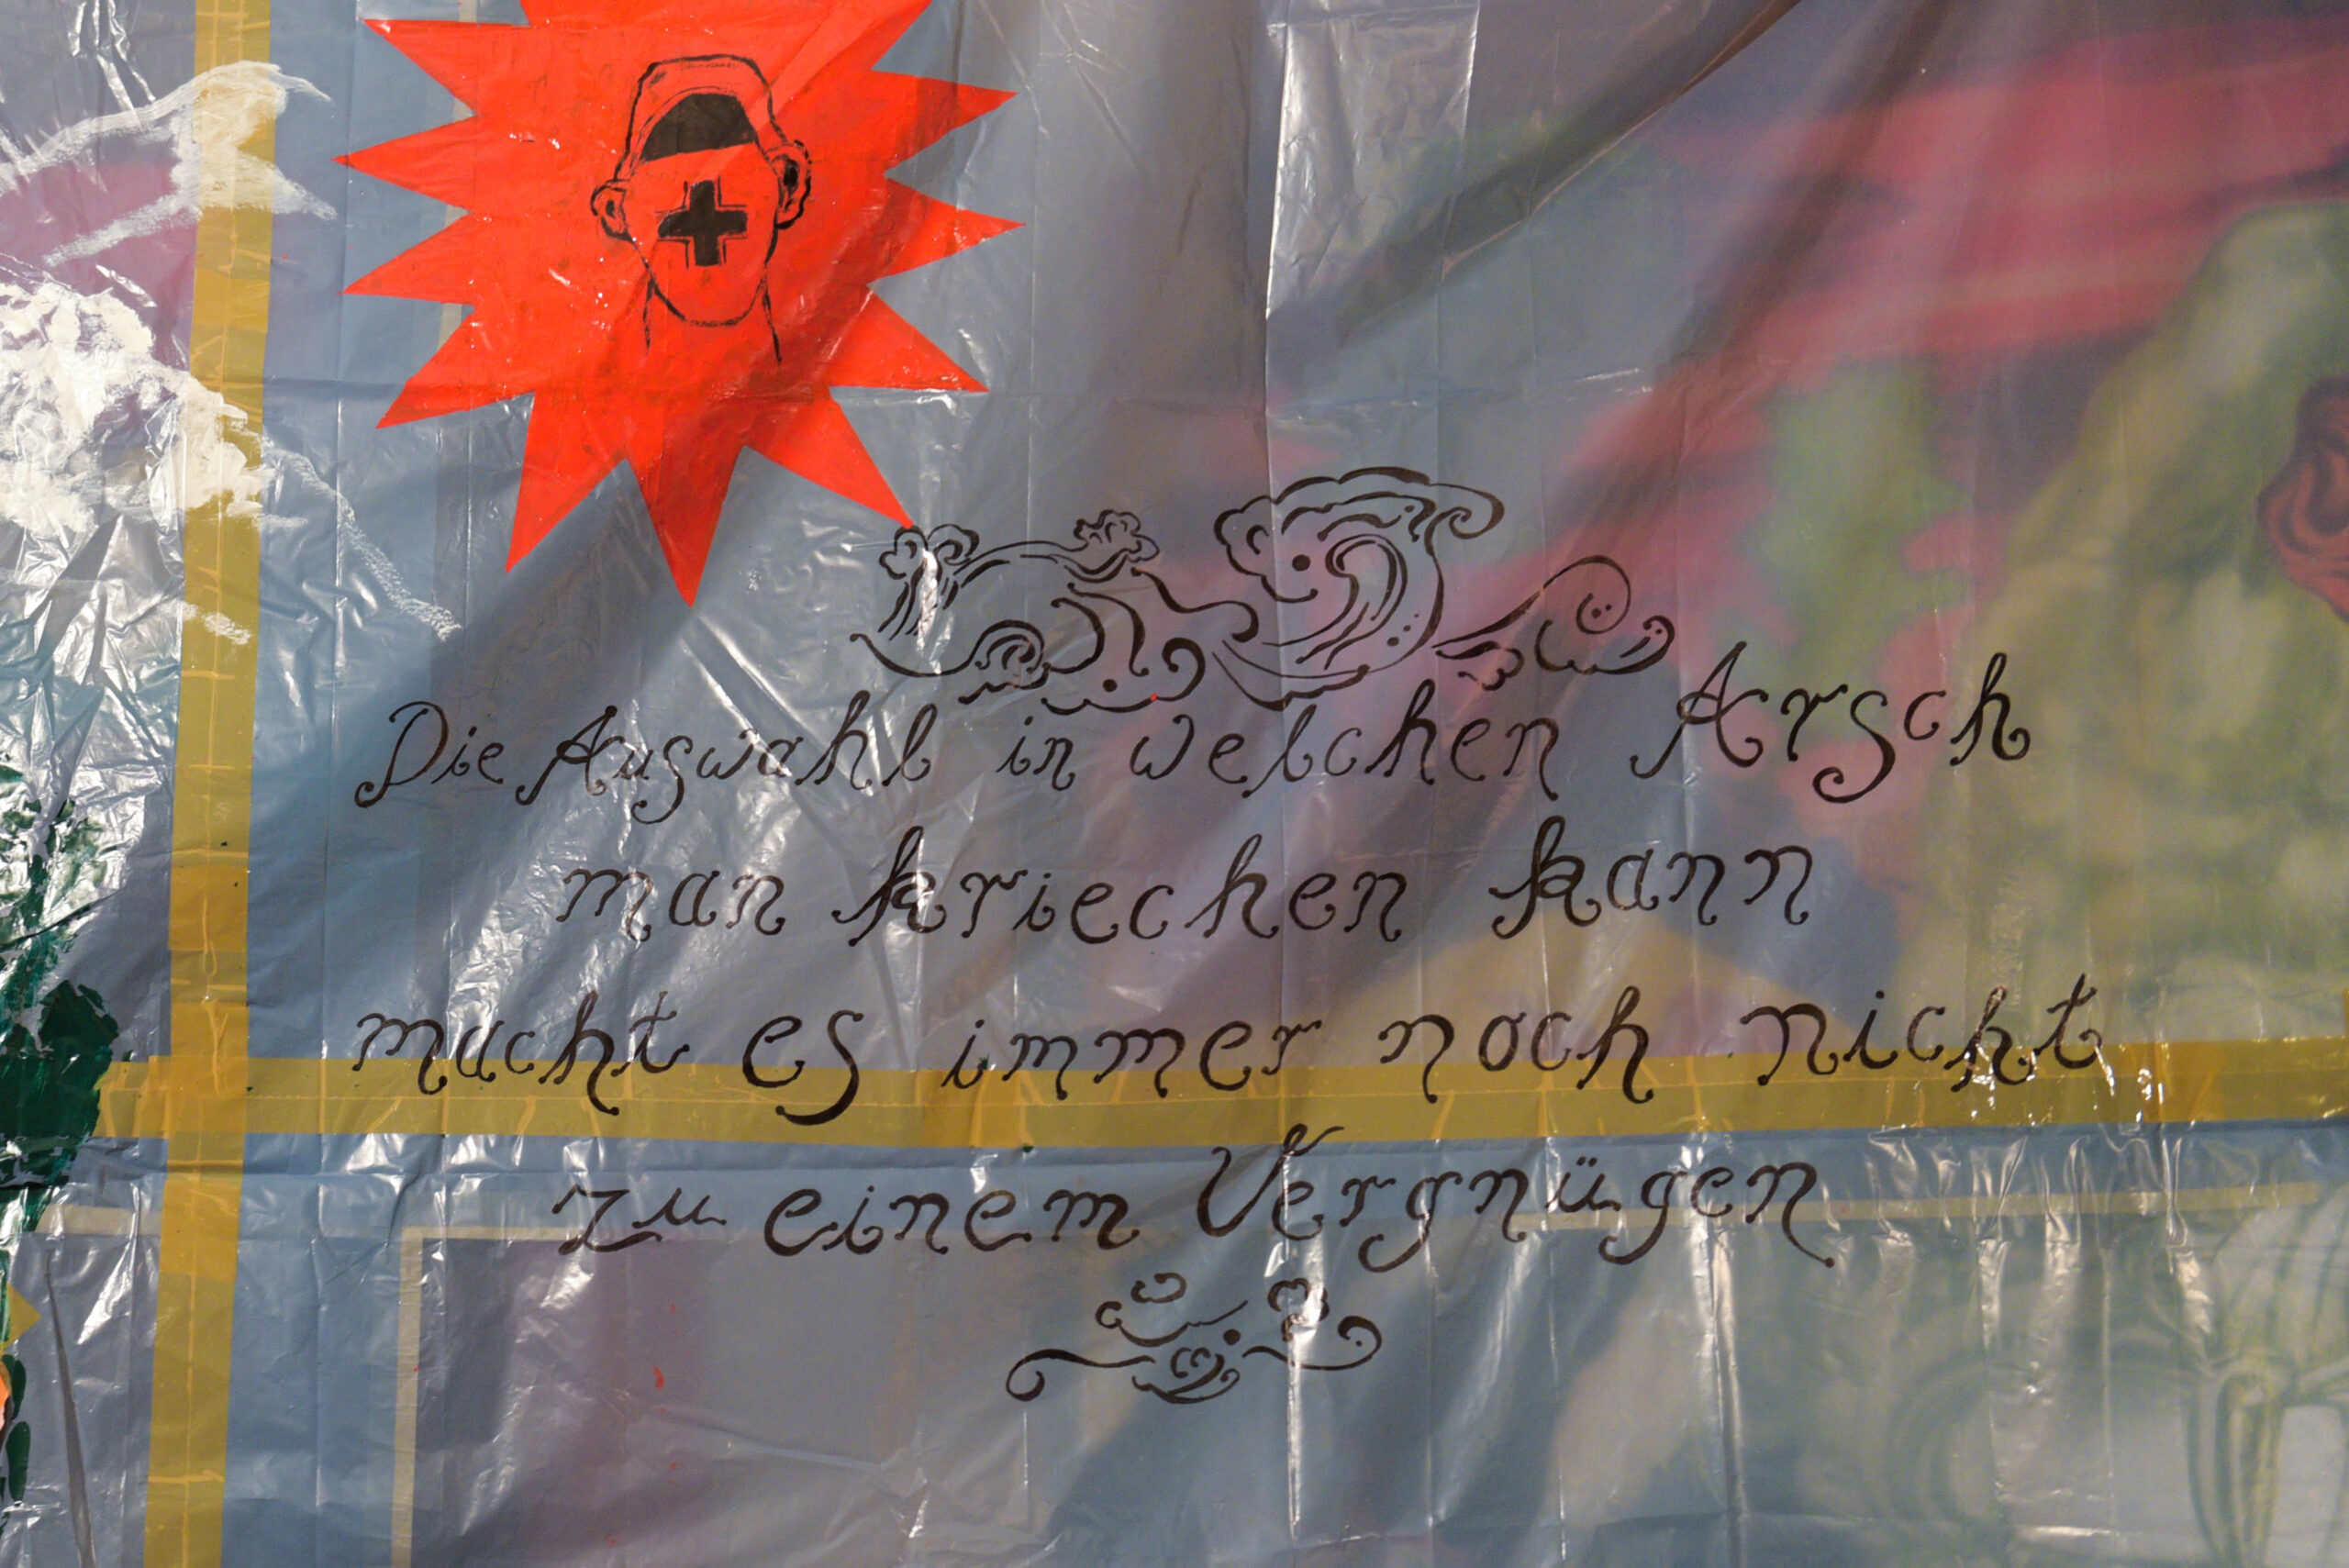 Die Auswahl in welchen Arsch
man kriechen kann
macht es immer noch nicht
zu einem Vergnügen